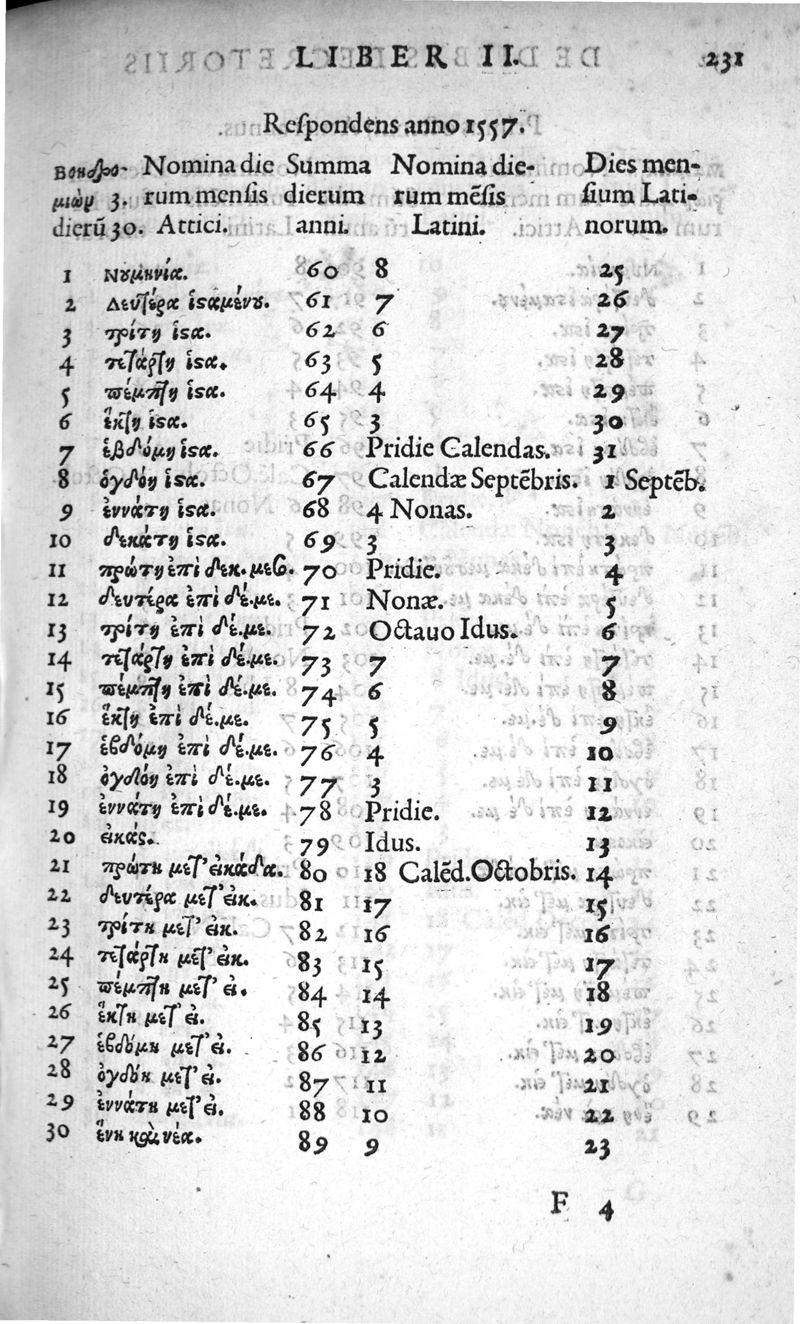 LIBER II. 231
Reſpondens anno 1557.
Βοηδρο- Nomina die Summa Nomina die- Dies men-
μιὼν 3. rum menſis dierum rum mẽſis ſium Lati-
dierũ 30. Attici. anni. Latini. norum.
1 Νουμηνία. 60 8 25
2 Δευτέρα ἱσαμένου. 61 7 26
3 τρίτη ἱσα. 62 6 27
4 τετάρτη ἱσα. 63 5 28
5 πέμπτη ἱσα. 64 4 29
6 ἕκτη ἱσα. 65 3 30
7 ἑβδόμη ἱσα. 66 Pridie Calendas. 31
8 ὀγδόη ἱσα. 67 Calendæ Septẽbris. 1 Septẽb.
9 ἐννάτη ἱσα. 68 4 Nonas. 2
10 δεκάτη ἱσα. 69 3 3
11 πρώτη ἐπὶ δεκ. μεσ. 70 Pridie. 4
12 δευτέρα ἐπὶ δέ.με. 71 Nonæ. 5
13 τρίτη ἐπὶ δέ.με. 72 Octauo Idus. 6
14 τετάρτη ἐπὶ δέ.με. 73 7 7
15 πέμπτη ἐπὶ δέ.με. 74 6 8
16 ἕκτη ἐπὶ δέ.με. 75 5 9
17 ἑβδόμη ἐπὶ δέ.με. 76 4 10
18 ὀγδόη ἐπὶ δέ.με. 77 3 11
19 ἐννάτη ἐπὶ δέ.με. 78 Pridie. 12
20 εἰκάς. 79 Idus. 13
21 πρώτη μετ’ εἰκάδα. 80 18 Calẽd.Octobris. 14
22 δευτέρα μετ’ εἰκ. 81 17 15
23 τρίτη μετ’ εἰκ. 82 16 16
24 τετάρτη μετ’ εἰκ. 83 15 17
25 πέμπτη μετ’ εἰ. 84 14 18
26 ἕκτη μετ’ εἰ. 85 13 19
27 ἑβδόμη μετ’ εἰ. 86 12 20
28 ὀγδόη μετ’ εἰ. 87 11 21
29 ἐννάτη μετ’ εἰ. 88 10 22
30 ἕνη καὶ νέα. 89 9 23
F 4